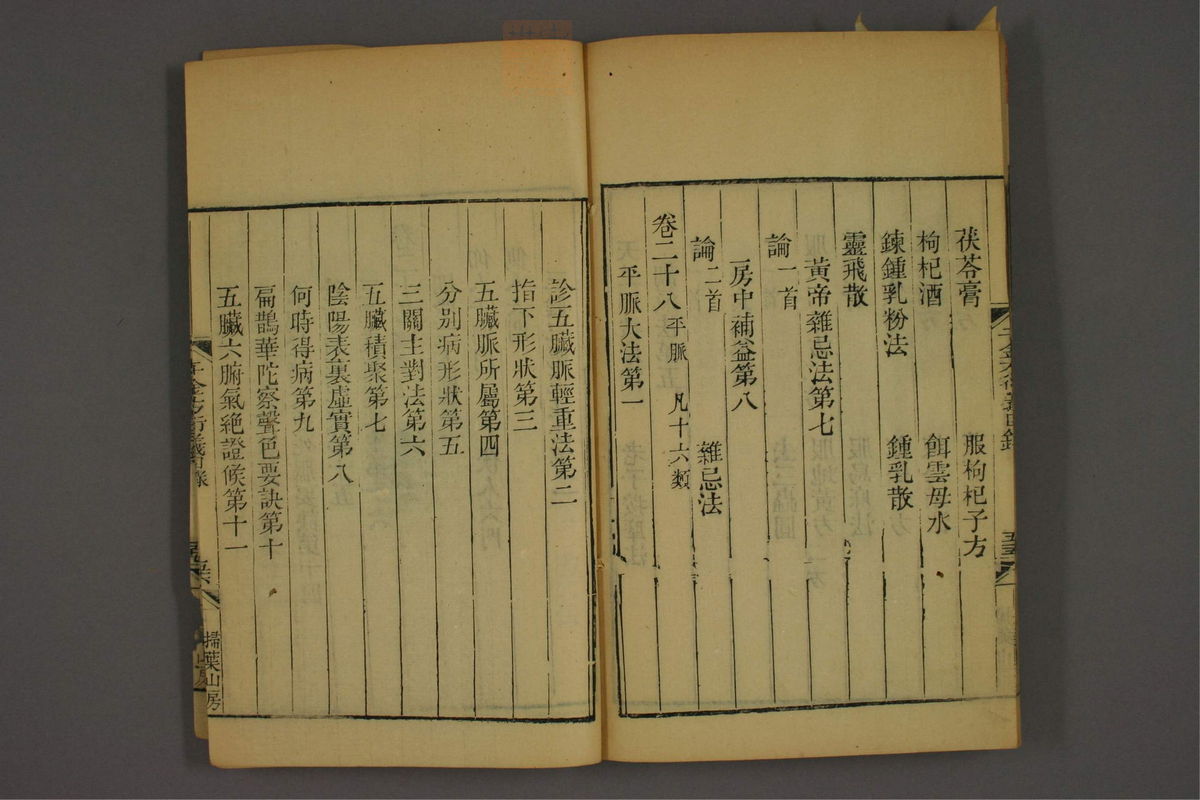 茯苓膏 服枸杞子方
枸杞酒 餌雲母水
鍊鍾乳粉法 鍾乳散
靈飛散
黃帝雜忌法第七
論一首
房中補益第八
論二首 雜忌法
卷二十八 平脈 凡十六類
平脈大法第一
診五臟脈輕重法第二
指下形狀第三
五臟脈所屬第四
分別病形狀第五
三關主對法第六
五臟積聚第七
陰陽表裏虛實第八
何時得病第九
扁鵲華陀察聲色要訣第十
五臟六腑氣絕證候第十一
千金方衍義目錄
掃葉山房